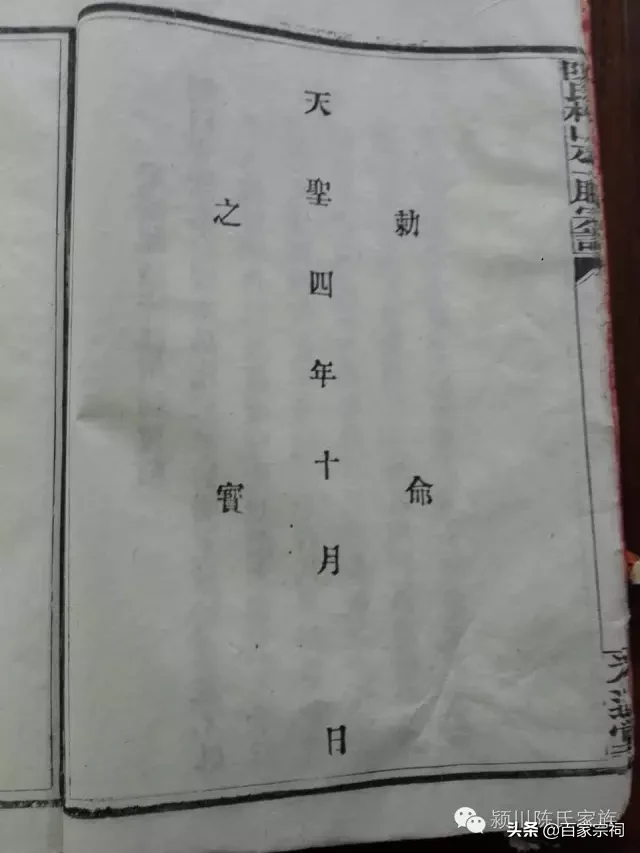 勅命
天聖四年十月日
之寳
颍川陈氏家族
头条 @百家宗祠